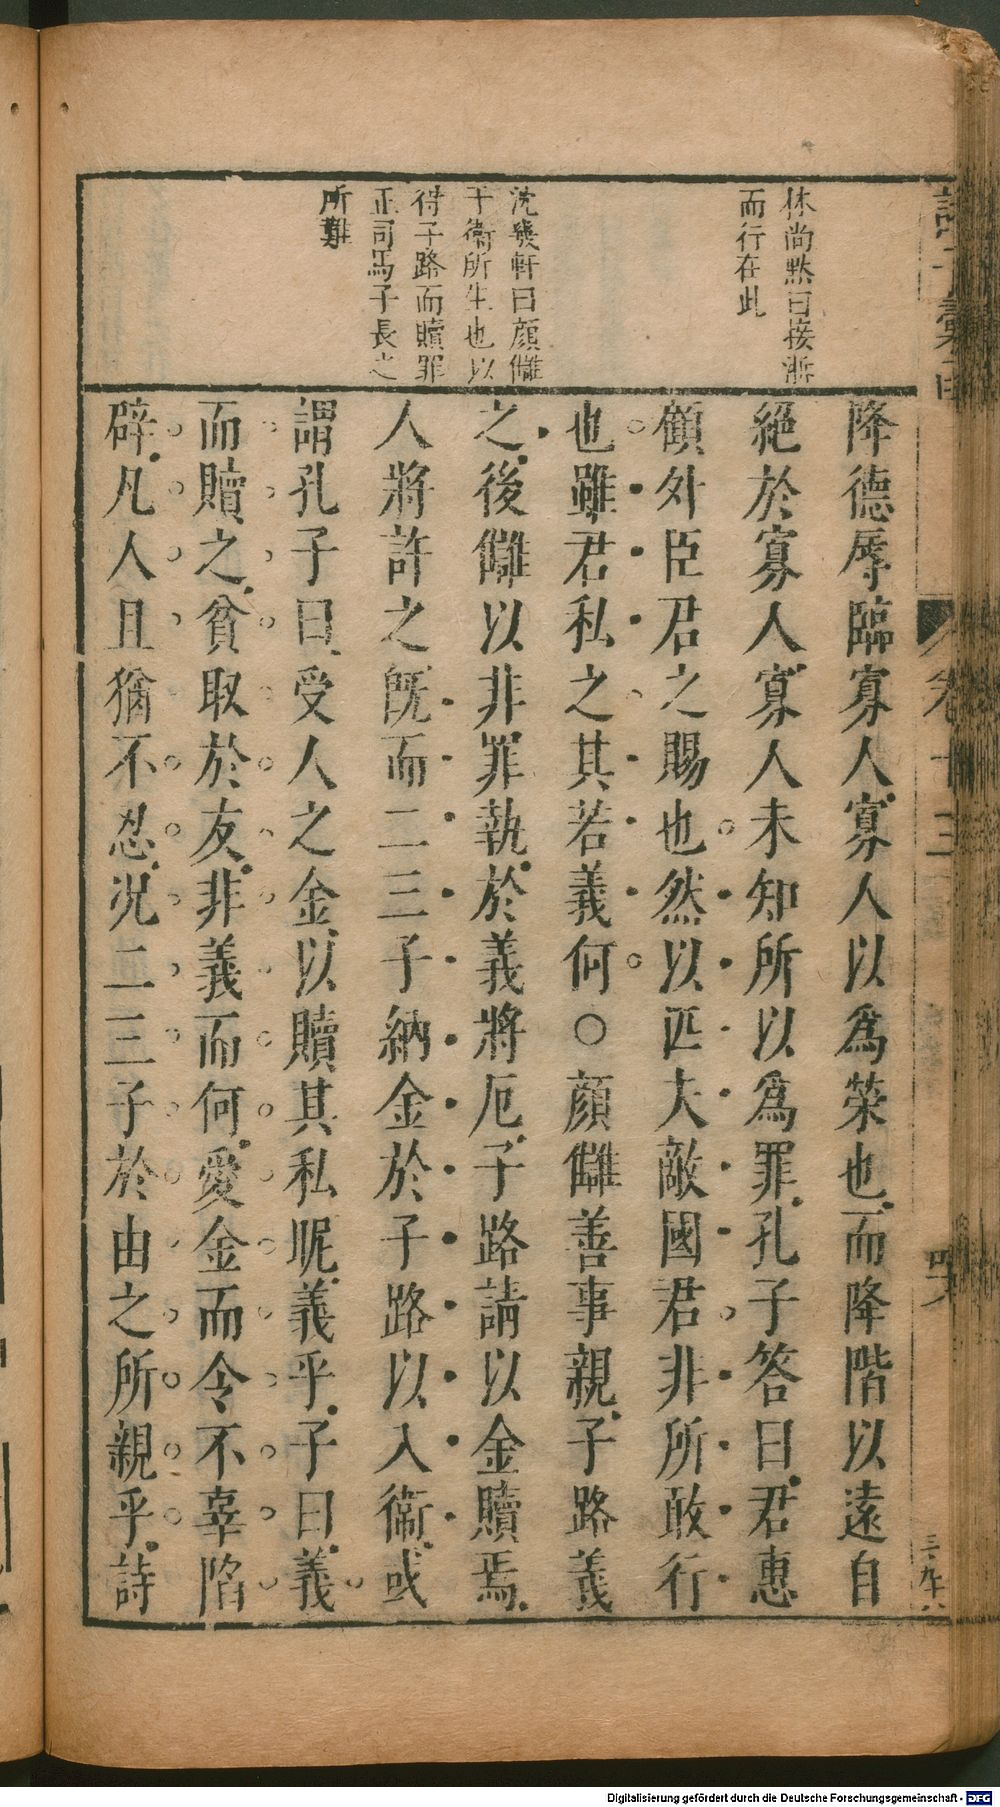 林尚默曰接淅
而行在此
沈㡬軒曰顔讎
于衛所生也以
得子路而贖罪
正司馬子長之
所難
降德辱臨寡人寡人以爲榮也而降階以遠自
絕於寡人寡人未知所以爲罪孔子答曰君惠
顧外臣君之賜也然以匹夫敵國君非所敢行
也雖君私之其若義何○顔讎善事親子路義
之後讎以非罪執於義將厄子路請以金贖焉
人將許之旣而二三子納金於子路以入衞或
謂孔子曰受人之金以贖其私昵義乎子曰義
而贖之貧取於友非義而何愛金而令不辜陷
辟凡人且猶不忍況二三子於由之所親乎詩
卷十三
Digitalisierung gefördert durch die Deutsche Forschungsgemeinschaft - DFG